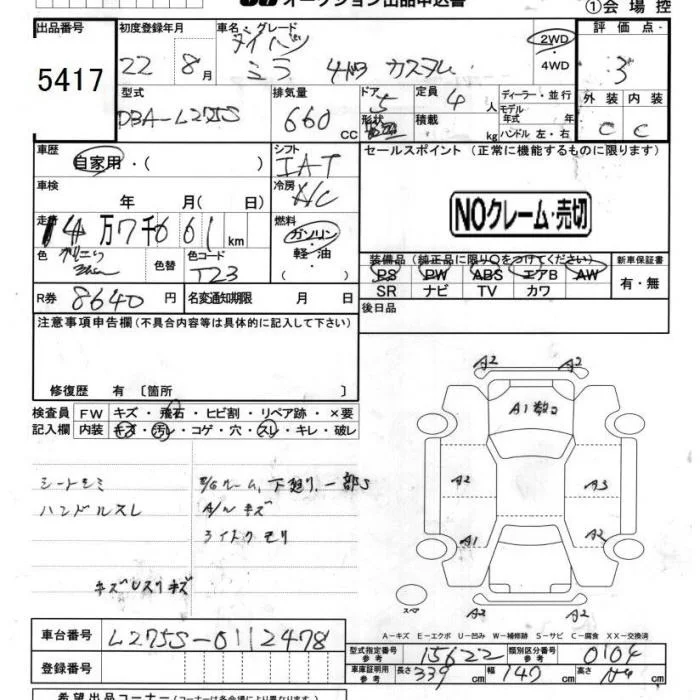 オークション出品申込書
①会場控
出品番号 初度登録年月 車名・グレード 評価点
5417 22年 8月 ダイハツ ミラ 4WD カスタム 2WD・4WD 3
型式 排気量 ドア 定員 ディーラー・並行 外装 内装
DBA-L275S 660 CC 5 4人 モデル年式 年 C C
形状 積載 kg ハンドル 左・右
車歴 シフト セールスポイント(正常に機能するものに限ります)
自家用・( ) IAT
車検 冷房
年 月(日) A/C
NOクレーム・売切
走行 燃料
14万7千661km ガソリン・軽油・( )
色 色替 色コード 装備品(純正品に限り○をつけてください) 新車保証書
T23 PS PW ABS エアB AW 有・無
SR ナビ TV カワ
R券 8640円 名変通知期限 月 日 後日品
注意事項申告欄(不具合内容等は具体的に記入して下さい)
修復歴 有〔箇所 〕
検査員 FW キズ・飛石・ヒビ割・リペア跡・×要
記入欄 内装 キズ・汚レ・コゲ・穴・スレ・キレ・破レ
シートシミ 下廻り、一部S
ハンドルスレ A/Wキズ
ライトクモリ
キズ
A2 A2
A1
A2 A3
A1 A2
スペア
A2 A2
A-キズ E-エクボ U-凹み W-補修跡 S-サビ C-腐食 XX-交換済
車台番号 L275S-0112478
型式指定番号 参考 15622 類別区分番号 参考 0104
登録番号
車庫証明用 参考 長さ 339cm 幅 147cm 高さ cm
希望出品コーナー(コーナーは各会場により異なります)